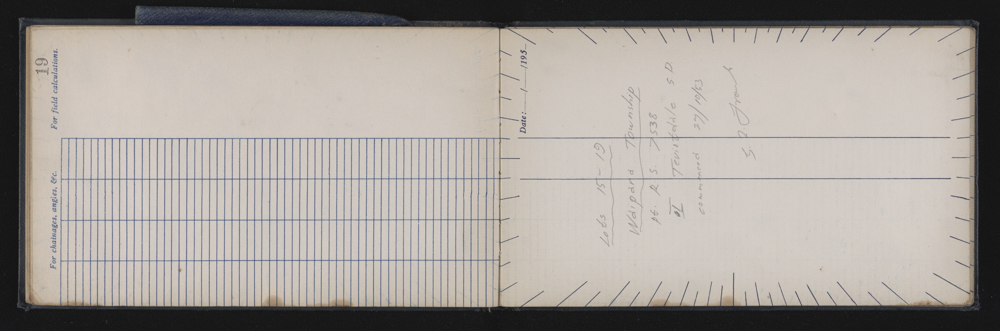 19
For field calculations.
For chainages, angles, &c.
Date: / /195
Lots 15-19
Waipara Township
Pt. R S 7538
II Teviotdale S D
commenced 27/10/53